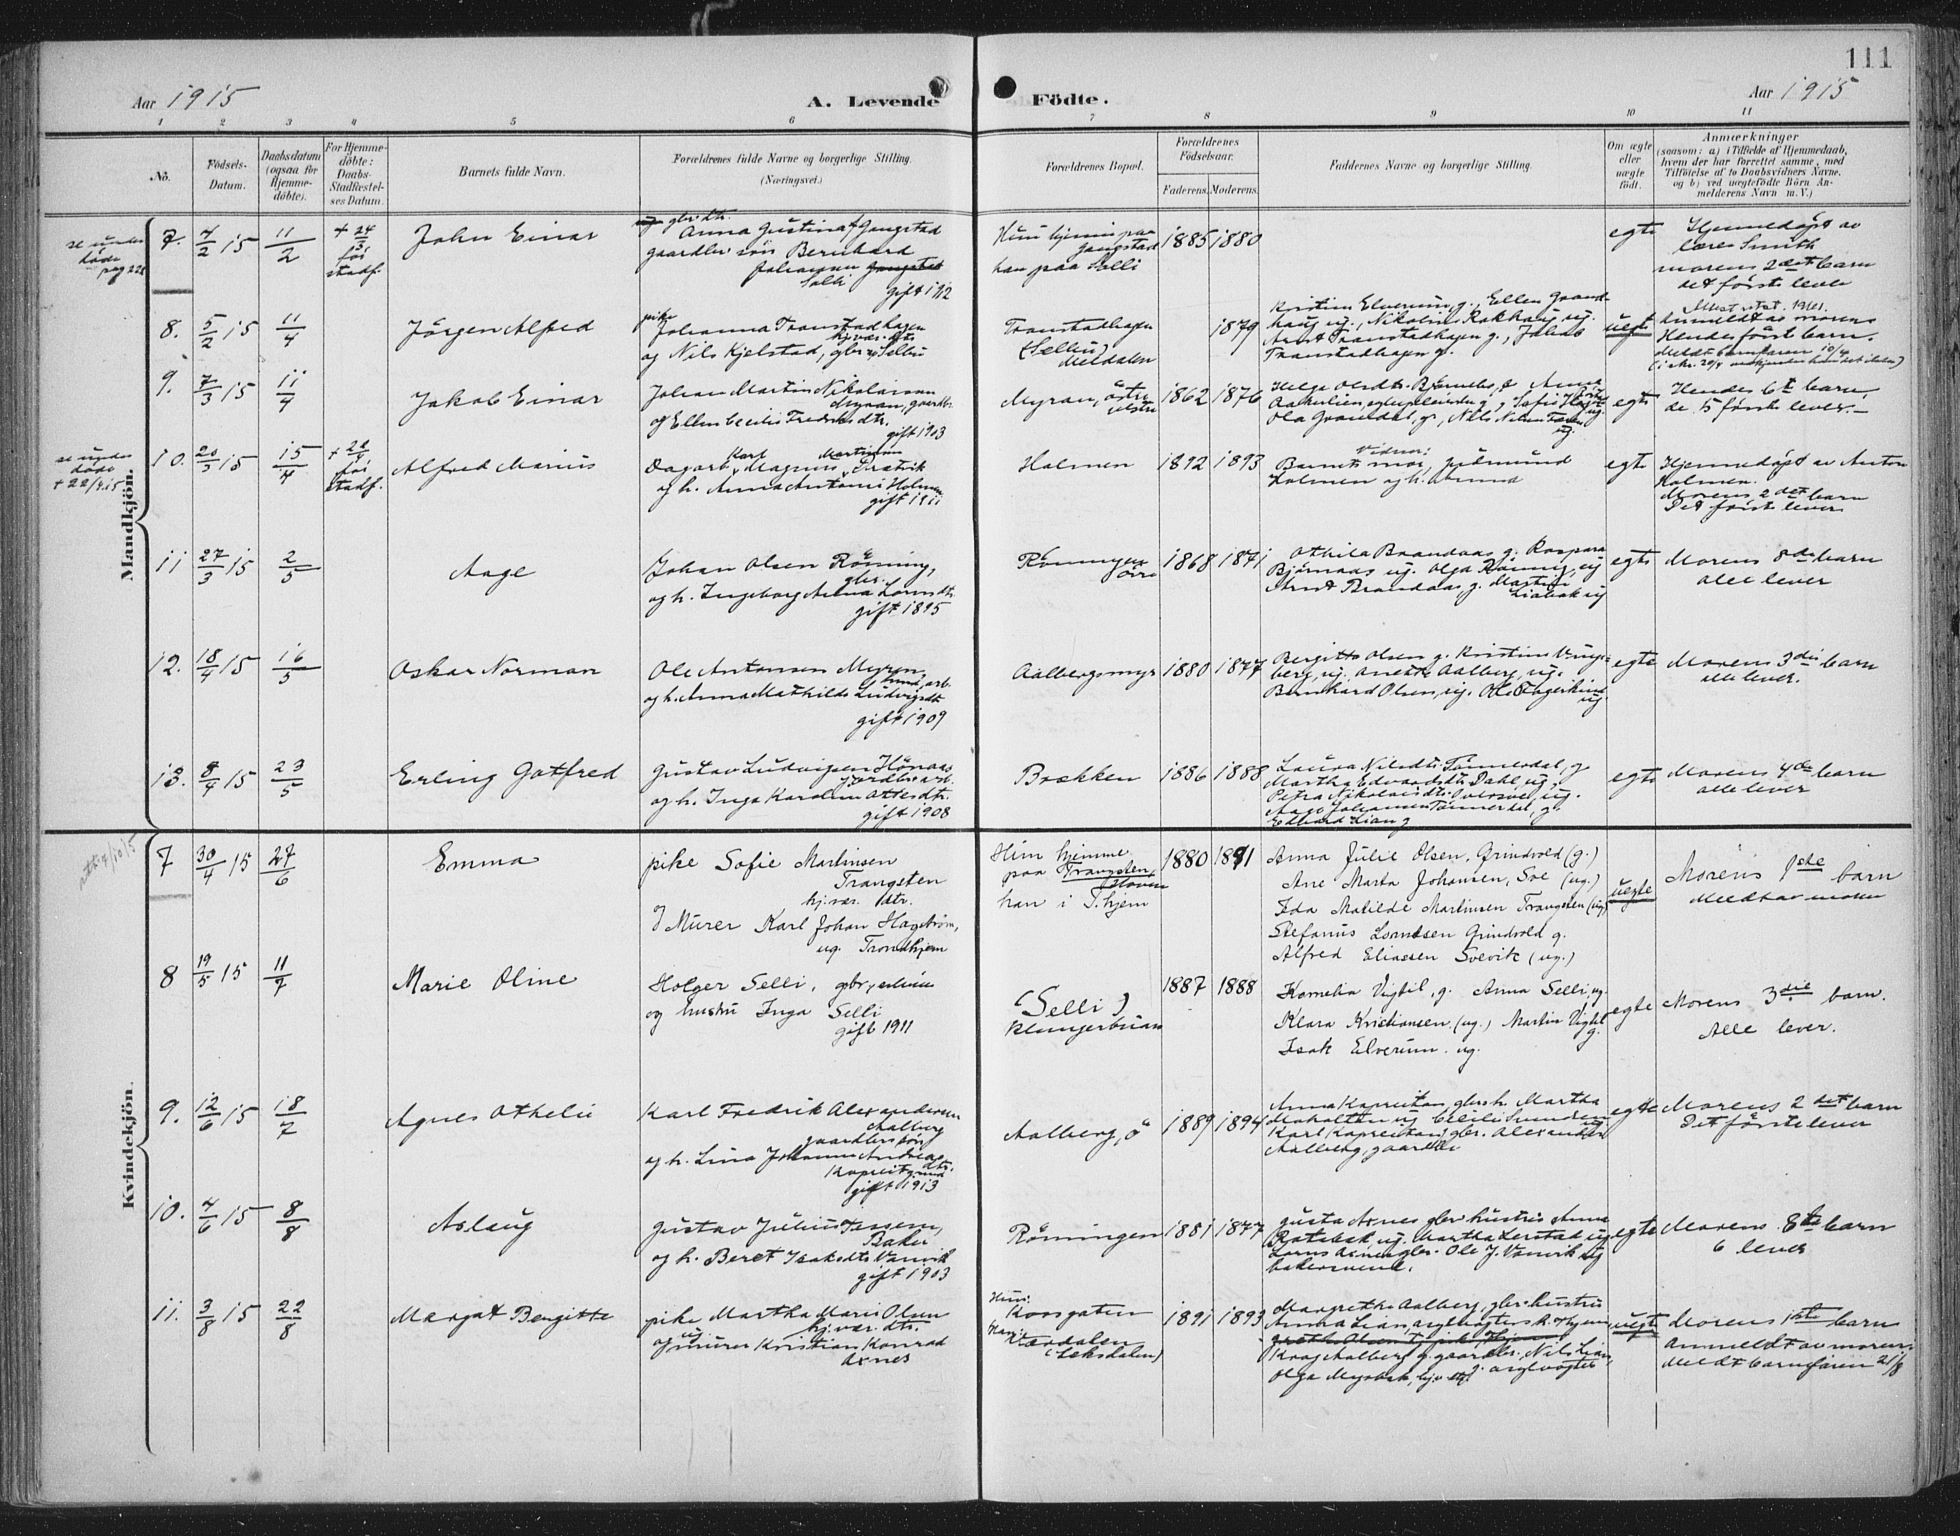 111
Aar 1915
A. Levende Födte.
Aar 1915
1 2 3 4 5 6 7 8 9 10 11
No.
Födsels-
Datum.
Daabsdatum
(ogsaa for
Hjemme-
döbte).
For Hjemme-
döbte:
Daabs-
Stadfæstel-
ses Datum.
Barnets fulde Navn.
Forældrenes fulde Navne og borgerlige Stilling.
(Næringsvei.)
Forældrenes Bopæl.
Forældrenes
Födselsaar.
Faderens. Moderens.
Faddernes Navne og borgerlige Stilling.
Om ægte
eller
uægte
födt.
Anmærkninger
(saasom: a) i Tilfælde af Hjemmedaab,
hvem der har forrettet samme, med
Tilföielse af to Daabsvidners Navne.
og b) ved uegtefödte Börn An-
melderens Navn m. V.)
Mandkjön.
se under
döde
pag 228
7. 7/2 15 11/2
+ 24/3
för
stadf.
John Einar
gbr. dtr.
Anna Gustina Gangstad
gaardbr sön Bernhard
Johansen
Selli
gift 1912
Hun hjemme paa
Gangstad
han paa Selli
1885 1880
egte
Hjemmedöpt av
lærer Smith
morens 2det barn
det förste lever
8. 5/2 15 11/4
Jörgen Alfred
pike
Johanna Tronstadhagen
hj.vær. dtr
og Nils Kjelstad, gbr. Selliu
Tronstadhagen
(Selliu)
Meldalen
1879
Kristine Elverum, g., Ellen Grand-
haug ug., Nikoline Rokhaug, ug.
Arnt Tronstadhagen g., Jakob
Tronstadhagen g.
uegt
anmeldt av moren
Hendes först barn.
9. 7/3 15 11/4
Jakob Einar
Johan Martin Nikolaisen
Myran, gaardbr.
og Ellen Cecilie Fredriksdtr.
gift 1903
Myran, östre
1862 1876
Ola Grandal, g., Nils Nilsen
ug.
egte
Hendes 6te barn,
de 5 förste lever.
se under
döde
+ 22/4.15
10. 20/3 15 15/4
+ 22/4
för
stadf.
Alfred Marius
Karl Martinsen
Dagarb. Magnus Stavik
og h. Anna Antonie Holmen
gift 1911
Holmen
1892 1893
Vidner:
Barnets mor, Gudmund
Holmen og h. Amund
egte
Hjemmedöpt av Anton
Holmen.
Morens 2det barn
Det förste lever
11 27/3 15 2/5
Aage
Johan Olsen Röning,
gbr.
og h. Ingeborg Anna Lornsdtr.
gift 1895
Rönningen
örre
1868 1871
Othilie Brandaas g. Kaspara
Björnaas ug. Olga Rönning, ug
Arnt Brandaas, g. Martin
Liabak ug
egte
Morens 8de barn
alle lever
12. 18/4 15 16/5
Oskar Norman
Ole Antonsen Myren,
og h. Anna Mathilde Ludvigsdtr.
gift 1909
Aalbergsmyr
1880 1877
Bergitte Olsen g. Kristine Vangs-
berg, ug. Anette Aalberg, ug.
Bernhard Olsen, ug. Ole Fagerlund
ug.
egte
Morens 3die barn
alle lever.
13. 8/4 15 23/5
Erling Gotfred
Gustav Ludvigsen Hönaas
jordbr. arb.
og h. Inga Karoline Ottesdtr.
gift 1908
Brækken
1886 1888
Laura Nilsdtr. Tömmerdal, g
Martha Edvardsdtr. Dahl, ug.,
Petra Nikolaisdtr. ug.
Aage Johansen Tömmerdal, g.
Edvard Liang
egte
Morens 4de barn
alle lever
Kvindekjön.
7 30/4 15 27/6
Emma
pike Sofie Martinsen
Trangsten
hj.vær. dtr.
I Murer Karl Johan Hagström,
ug. Trondhjem
Hun hjemme
paa Trangsten
han i T.hjem
1880 1891
Anna Julie Olsen, Grindvold (g.)
Ane Marta Johansen, Sve (ug.)
Ida Matilde Martinsen Trangsten (ug)
Stefanus Lorntsen Grindvold g.
Alfred Eliassen Svevik (ug.)
uegte
Morens 1ste barn
Meldt av moren
8 19/5 15 11/7
Marie Oline
Holger Selli, gbr.
og hustru Inga Selli
gift 1911
(Selli)
Klungerbuan
1887 1888
Kornelia Vigtil, g. Anna Selli, ug.
Klara Kristiansen (ug.) Martin Vigtil
g.
Isak Elverum. ug.
egte
Morens 3die barn.
Alle lever.
9. 12/6 15 18/7
Agnes Othelie
Karl Fredrik Alexandersen
Aalberg
gaardbr. sön
og h. Lina Johanna Andreasdtr.
gift 1913
Aalberg, ö
1889 1894
Karl Kapreitan, gbr. Alexander
Aalberg, gaardbr
egte
Morens 2det barn
Det förste lever
10. 4/6 15 8/8
Aslaug
Gustav Julius Jessem,
Baker
og h. Beret Isaksdtr Vanvik
gift 1903
Röningen
1881 1877
Gusta Axnes gbr. hustru Anna
Ratabak ug. Martha Lerstad ug
Lorns Axnes gbr. Ole J. Vanvik ug
bakersvend.
egte
Morens 8de barn
6 lever
11. 3/8 15 22/8
Margot Bergitte
pike Martha Marie Olsen
hj.vær. dtr.
og murer Kristian Konrad
Axnes
Hun:
Korsgaten
Han:
Værdalen
(Leksdalen)
1891 1893
Margrethe Aalberg, gbr. hustru
Kaag Aalberg g. gaardbr., Nils Lian,
Olga Myrbak, hj.v dtr.
uegt
Morens 1ste barn
anmeldt av moren.
Meldt barnefaren 21/8